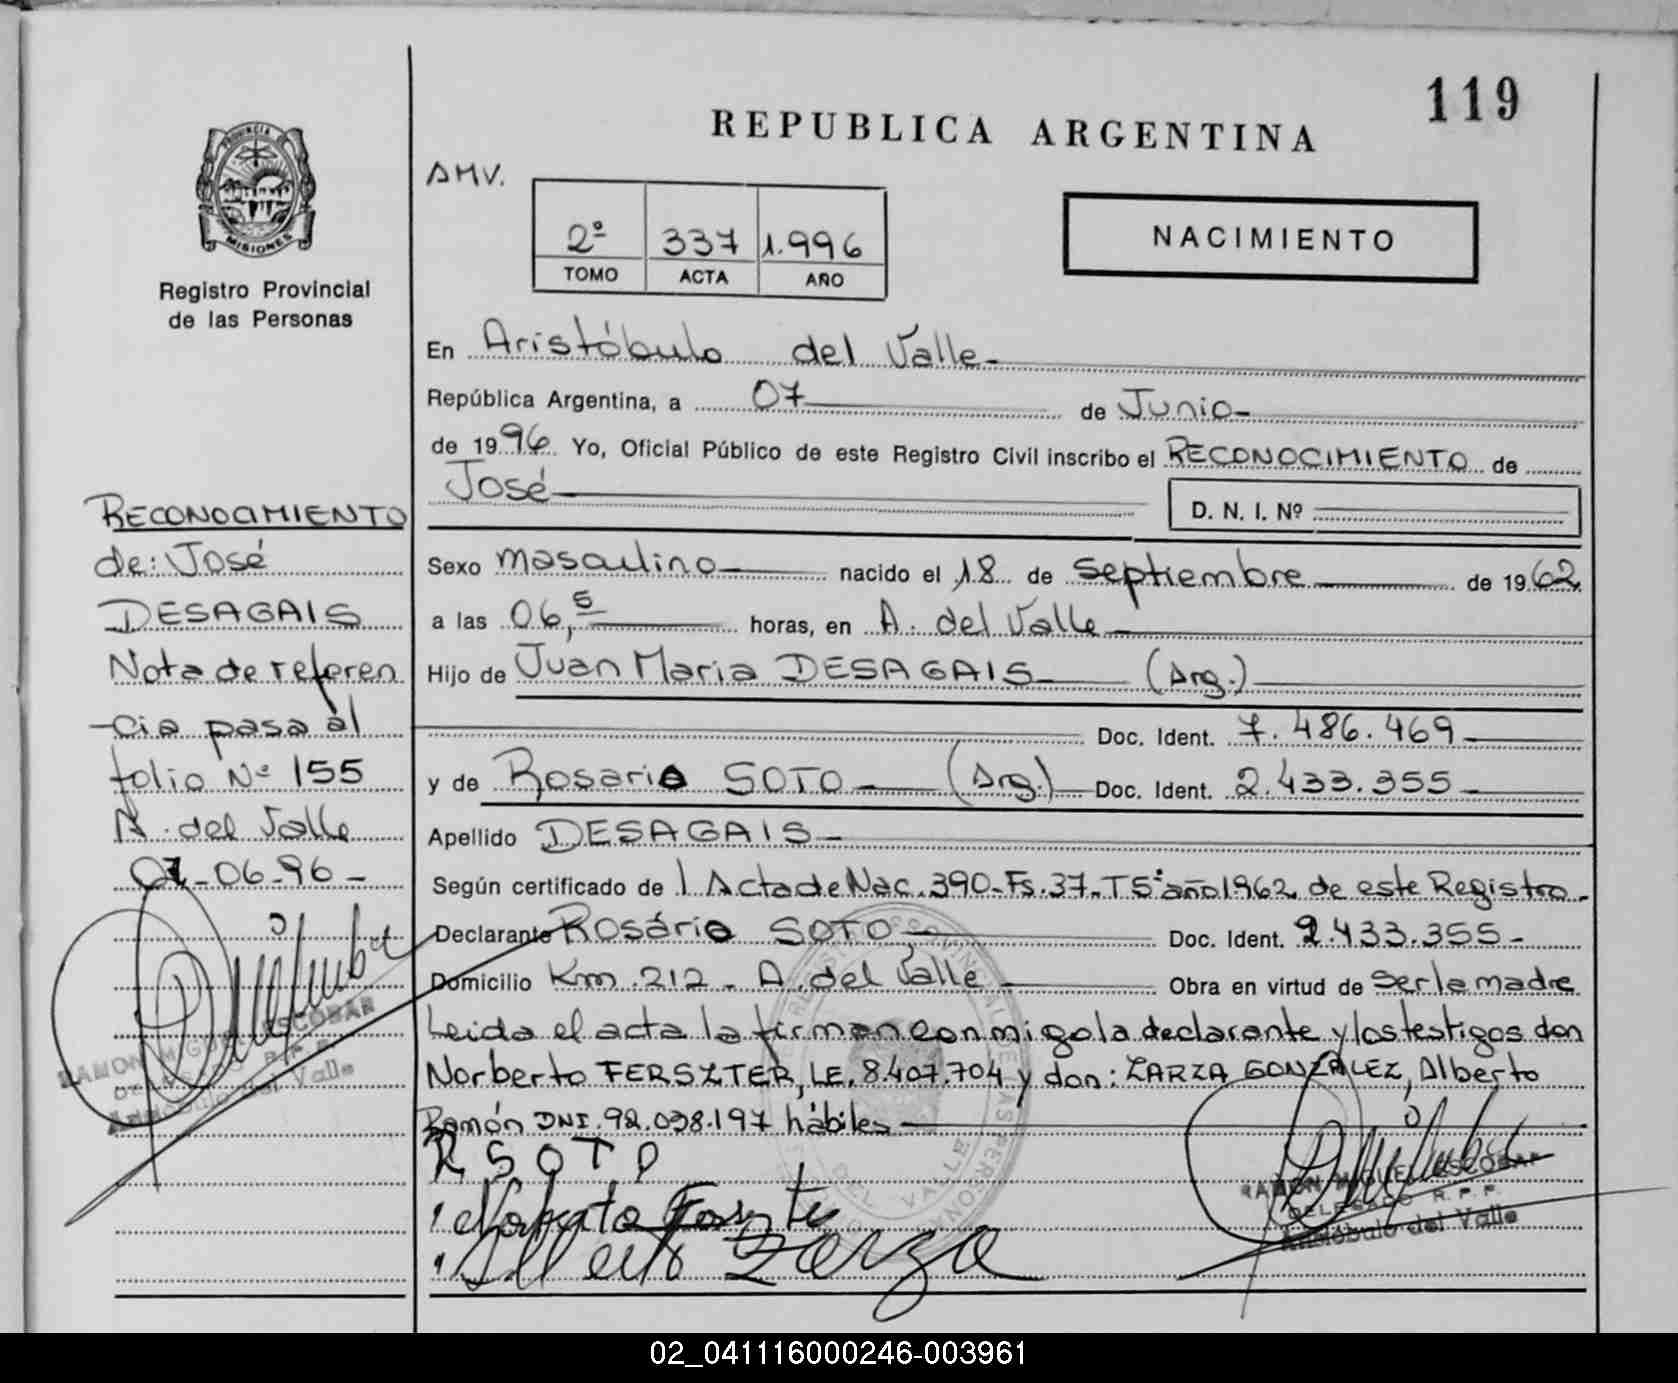 119
REPUBLICA ARGENTINA
PROVINCIA
MISIONES
Registro Provincial
de las Personas
AMV.
2º 337 1.996
TOMO ACTA AÑO
NACIMIENTO
En Aristóbulo del Valle-
República Argentina, a 07 de Junio-
de 1996. Yo, Oficial Público de este Registro Civil inscribo el RECONOCIMIENTO de
José
D. N. I. Nº
Sexo masculino nacido el 18 de septiembre de 1962
a las 06,5 horas, en A. del Valle
Hijo de Juan Maria DESAGAIS (Arg.)
Doc. Ident. 7.486.469
y de Rosario SOTO (Arg.) Doc. Ident. 2.433.355
Apellido DESAGAIS-
Según certificado de 1 Acta de Nac. 390-Fs. 37-T5º año 1962 de este Registro-
Declarante Rosário SOTO Doc. Ident. 2.433.355-
Domicilio Km. 212 - A. del Valle Obra en virtud de ser la madre
Leida el acta la firman conmigo la declarante y los testigos don
Norberto FERSZTER, LE. 8.407.704 y don: ZARZA GONZALEZ, Alberto
Ramón DNI. 92.038.197 hábiles
R SOTO
Alberto Zarza
RAMON MIGUEL ESCOBAR
DELEGADO R.P.P.
Aristóbulo del Valle
RECONOCIMIENTO
de: José
DESAGAIS
Nota de referen
-cia pasa al
folio Nº 155
A. del Valle
07-06-96-
RAMON MIGUEL ESCOBAR
DELEGADO R.P.P.
Aristóbulo del Valle
02_041116000246-003961